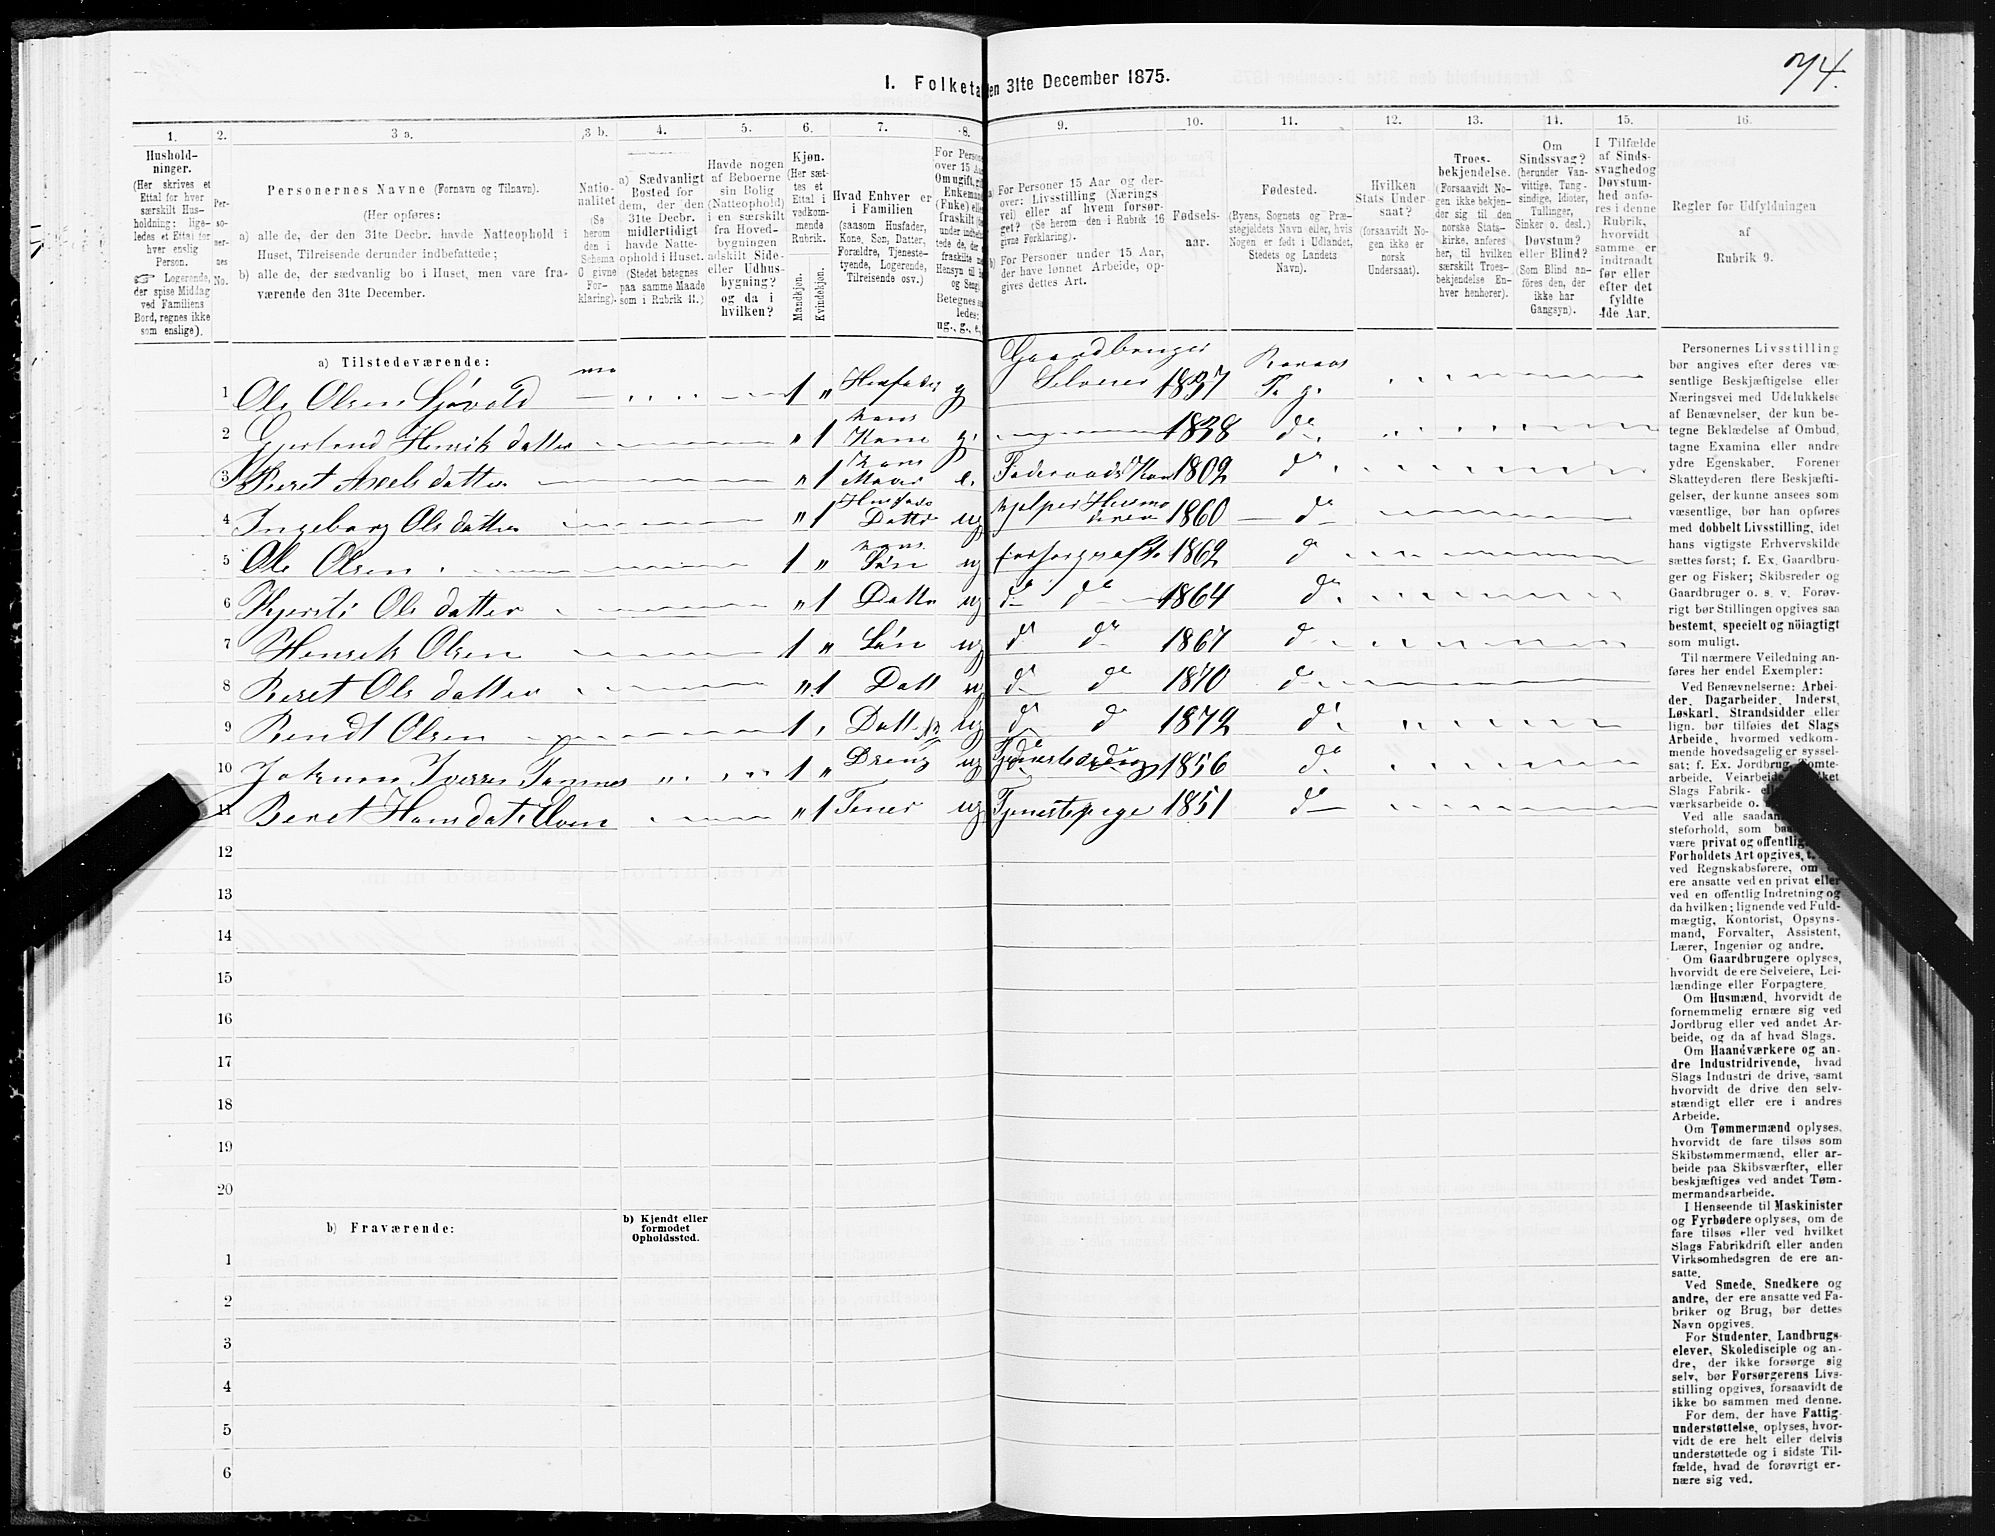 74.
I. Folketa en 31te December 1875.
1. 2. 3 a. 3 b. 4. 5. 6. 7. 8. 9. 10. 11. 12. 13. 14. 15. 16.
Hushold-
ninger.
(Her skrives et
Ettal for hver
særskilt Hus-
holdning; lige-
ledes et Ettal for
hver enslig
Person.
☞ Logerende,
der spise Middag
ved Familiens
Bord, regnes ikke
som enslige).
Per-
so-
ner-
nes
No.
Personernes Navne (Fornavn og Tilnavn).
(Her opføres:
a) alle de, der den 31te Decbr. havde Natteophold i
Huset, Tilreisende derunder indbefattede;
b) alle de, der sædvanlig bo i Huset, men vare fra-
værende den 31te December.
Natio-
nalitet
(Se
herom
den i
Schema
C givne
For-
klaring).
a) Sædvanligt
Bosted for
dem, der den
31te Decbr.
midlertidigt
havde Natte-
ophold i Huset.
(Stedet betegnes
paa samme Maade
som i Rubrik 11.)
Havde nogen
af Beboerne
sin Bolig
(Natteophold)
i en særskilt
fra Hoved-
bygningen
adskilt Side-
eller Udhus-
bygning?
og da i
hvilken?
Kjøn.
(Her sæt-
tes et
Ettal i
vedkom-
mende
Rubrik.
Mandkjøn.
Kvindekjøn.
Hvad Enhver er
i Familien
(saasom Husfader,
Kone, Søn, Datter,
Forældre, Tjeneste-
tyende, Logerende,
Tilreisende osv.)
For Persone
over 15 Aa
Om ugift, gif
Enkemand
(Enke) elle
fraskilt
ug., g., e.,
a) For Personer 15 Aar og der-
over: Livsstilling (Nærings-
vei) eller af hvem forsør-
get? (Se herom den i Rubrik 16
givne Forklaring).
b) For Personer under 15 Aar,
der have lønnet Arbeide, op-
gives dettes Art.
Fødsels-
aar.
Fødested.
(Byens, Sognets og Præ-
stegjeldets Navn eller, hvis
Nogen er født i Udlandet,
Stedets og Landets
Navn).
Hvilken
Stats Under-
saat?
(forsaavidt No-
gen ikke er
norsk
Undersaat).
Troes-
bekjendelse.
(Forsaavidt No-
gen ikke bekjen-
der sig til den
norske Stats-
kirke, anføres
her, til hvilken
særskilt Troes-
bekjendelse En-
hver henhører).
Om
Sindssvag?
(herunder Van-
vittige, Tung-
sindige, Idioter,
Tullinger,
Sinker o. desl.)
Døvstum?
eller Blind?
(Som Blind an-
føres den, der
ikke har
Gangsyn).
I Tilfælde
af Sinds-
svaghed og
Døvstum-
hed anfø-
res i denne
Rubrik,
hvorvidt
samme er
indtraadt
før eller
efter det
fyldte
4de Aar.
Regler for Udfyldningen
af
Rubrik 9.
a) Tilstedeværende:
1 Ole Olsen 1 „ Husfader g Gaardbruger Selveier 1837
2 Henrik datter „ 1 hans Kone g. 1838 do
3 Beret Axels datter „ 1 hans Moder e. 1802 do
4 Ingeborg Ols datter „ 1 Husfade Datter ug hjelper Husmo 1860 do
5 Ole Olsen 1 „ hans Søn ug 1862 do
6 Kjersti Ols datter „ 1 Datte ug do do 1864 do
7 Henrik Olsen 1 „ Søn ug do do 1867 do
8 Beret Ols datter „ 1 Datt ug do do 1870 do
9 Bendt Olsen 1 , ug do do 1872 do
10 Iversen 1 „ Dreng ug Tjenestedreng 1856 do
11 Beret „ 1 Tener ug Tjenestepige 1851 do
12
13
14
15
16
17
18
19
20
b) Fraværende:
b) Kjendt eller
formodet
Opholdssted.
1
2
3
4
5
6
Personernes Livsstilling
bør angives efter deres væ-
sentlige Beskjæftigelse eller
Næringsvei med Udelukkelse
af Benævnelser, der kun be-
tegne Beklædelse af Ombud,
tagne Examina eller andre
ydre Egenskaber. Forener
Skatteyderen flere Beskjæfti-
gelser, der kunne ansees som
væsentlige, bør han opføres
med dobbelt Livsstilling, idet
hans vigtigste Erhvervskilde
sættes først; f. Ex. Gaardbru-
ger og Fisker; Skibsreder og
Gaardbruger o. s. v. Forøv-
rigt bør Stillingen opgives saa
bestemt, specielt og nöiagtigt
som muligt.
Til nærmere Veiledning an-
føres her endel Exempler:
Ved Benævnelserne: Arbei-
der, Dagarbeider, Inderst,
Løskarl, Strandsidder eller
lign. bør tilføies det Slags
Arbeide, hvormed vedkom-
mende hovedsagelig er syssel-
sat; f. Ex. Jordbrug, Tomte-
arbeide, Veiarbeide
Slags Fabrik-
værksarbeide o.
Ved alle saadan
steforhold, som
være privat og offentlig,
Forholdets Art opgives, t.
ved Regnskabsførere, om
ere ansatte ved en privat eller
ved en offentlig Indretning og
da hvilken; lignende ved Fuld-
mægtig, Kontorist, Opsyns-
mand, Forvalter, Assistent,
Lærer, Ingeniør og andre.
Om Gaardbrugere oplyses,
hvorvidt de ere Selveiere, Lei-
lændinge eller Forpagtere.
Om Husmænd, hvorvidt de
fornemmelig ernære sig ved
Jordbrug eller ved andet Ar-
beide, og da af hvad Slags.
Om Haandværkere og an-
dre Industridrivende, hvad
Slags Industri de drive, samt
hvorvidt de drive den selv-
stændigt eller ere i andres
Arbeide.
Om Tømmermænd oplyses,
hvorvidt de fare tilsøs som
Skibstømmermænd, eller ar-
beide paa Skibsværfter, eller
beskjæftiges ved andet Tøm-
mermandsarbeide.
I Henseende til Maskinister
og Fyrbødere oplyses, om de
fare tilsøs eller ved hvilket
Slags Fabrikdrift eller anden
Virksomhedsgren de ere an-
satte.
Ved Smede, Snedkere og
andre, der ere ansatte ved Fa-
briker og Brug, bør dettes
Navn opgives.
For Studenter, Landbrugs-
elever, Skoledisciple og an-
dre, der ikke forsørge sig
selv, bør Forsørgerens Livs-
stilling opgives, forsaavidt de
ikke bo sammen med denne.
For dem, der have Fattig-
understøttelse, oplyses, hvor-
vidt de ere helt eller delvis
understøttede og i sidste Til-
fælde, hvad de forøvrigt er-
nære sig ved.